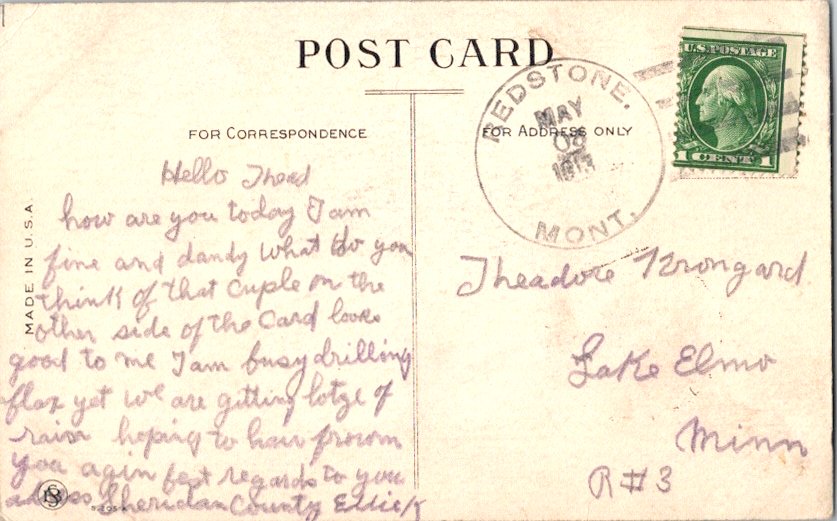 POST CARD
FOR CORRESPONDENCE
FOR ADDRESS ONLY
MADE IN U.S.A.
REDSTONE.
MAY
1913
MONT.
U.S. POSTAGE
1 CENT 1
Hello Thead
how are you today I am
fine and dandy what do you
think of that cuple on the
other side of the card looks
good to me I am busy drilling
flax yet we are getting lotze of
rain hoping to hair frowm
you agin best regards to you
adress Sheridan County Eddie K
Theadore Krongard
Lake Elmo
Minn
R#3